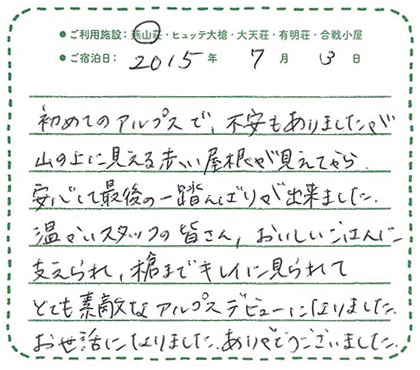 ●ご利用施設：燕山荘・ヒュッテ大槍・大天荘・有明荘・合戦小屋
●ご宿泊日： 2015年 7月 13日
初めてのアルプスで、不安もありましたが
山の上に見える赤い屋根が見えてから
安心して最後の一踏んばりが出来ました。
温かいスタッフの皆さん、おいしいごはんに
支えられ、槍までキレイに見られて
とても素敵なアルプスデビューになりました。
お世話になりました。ありがとうございました。